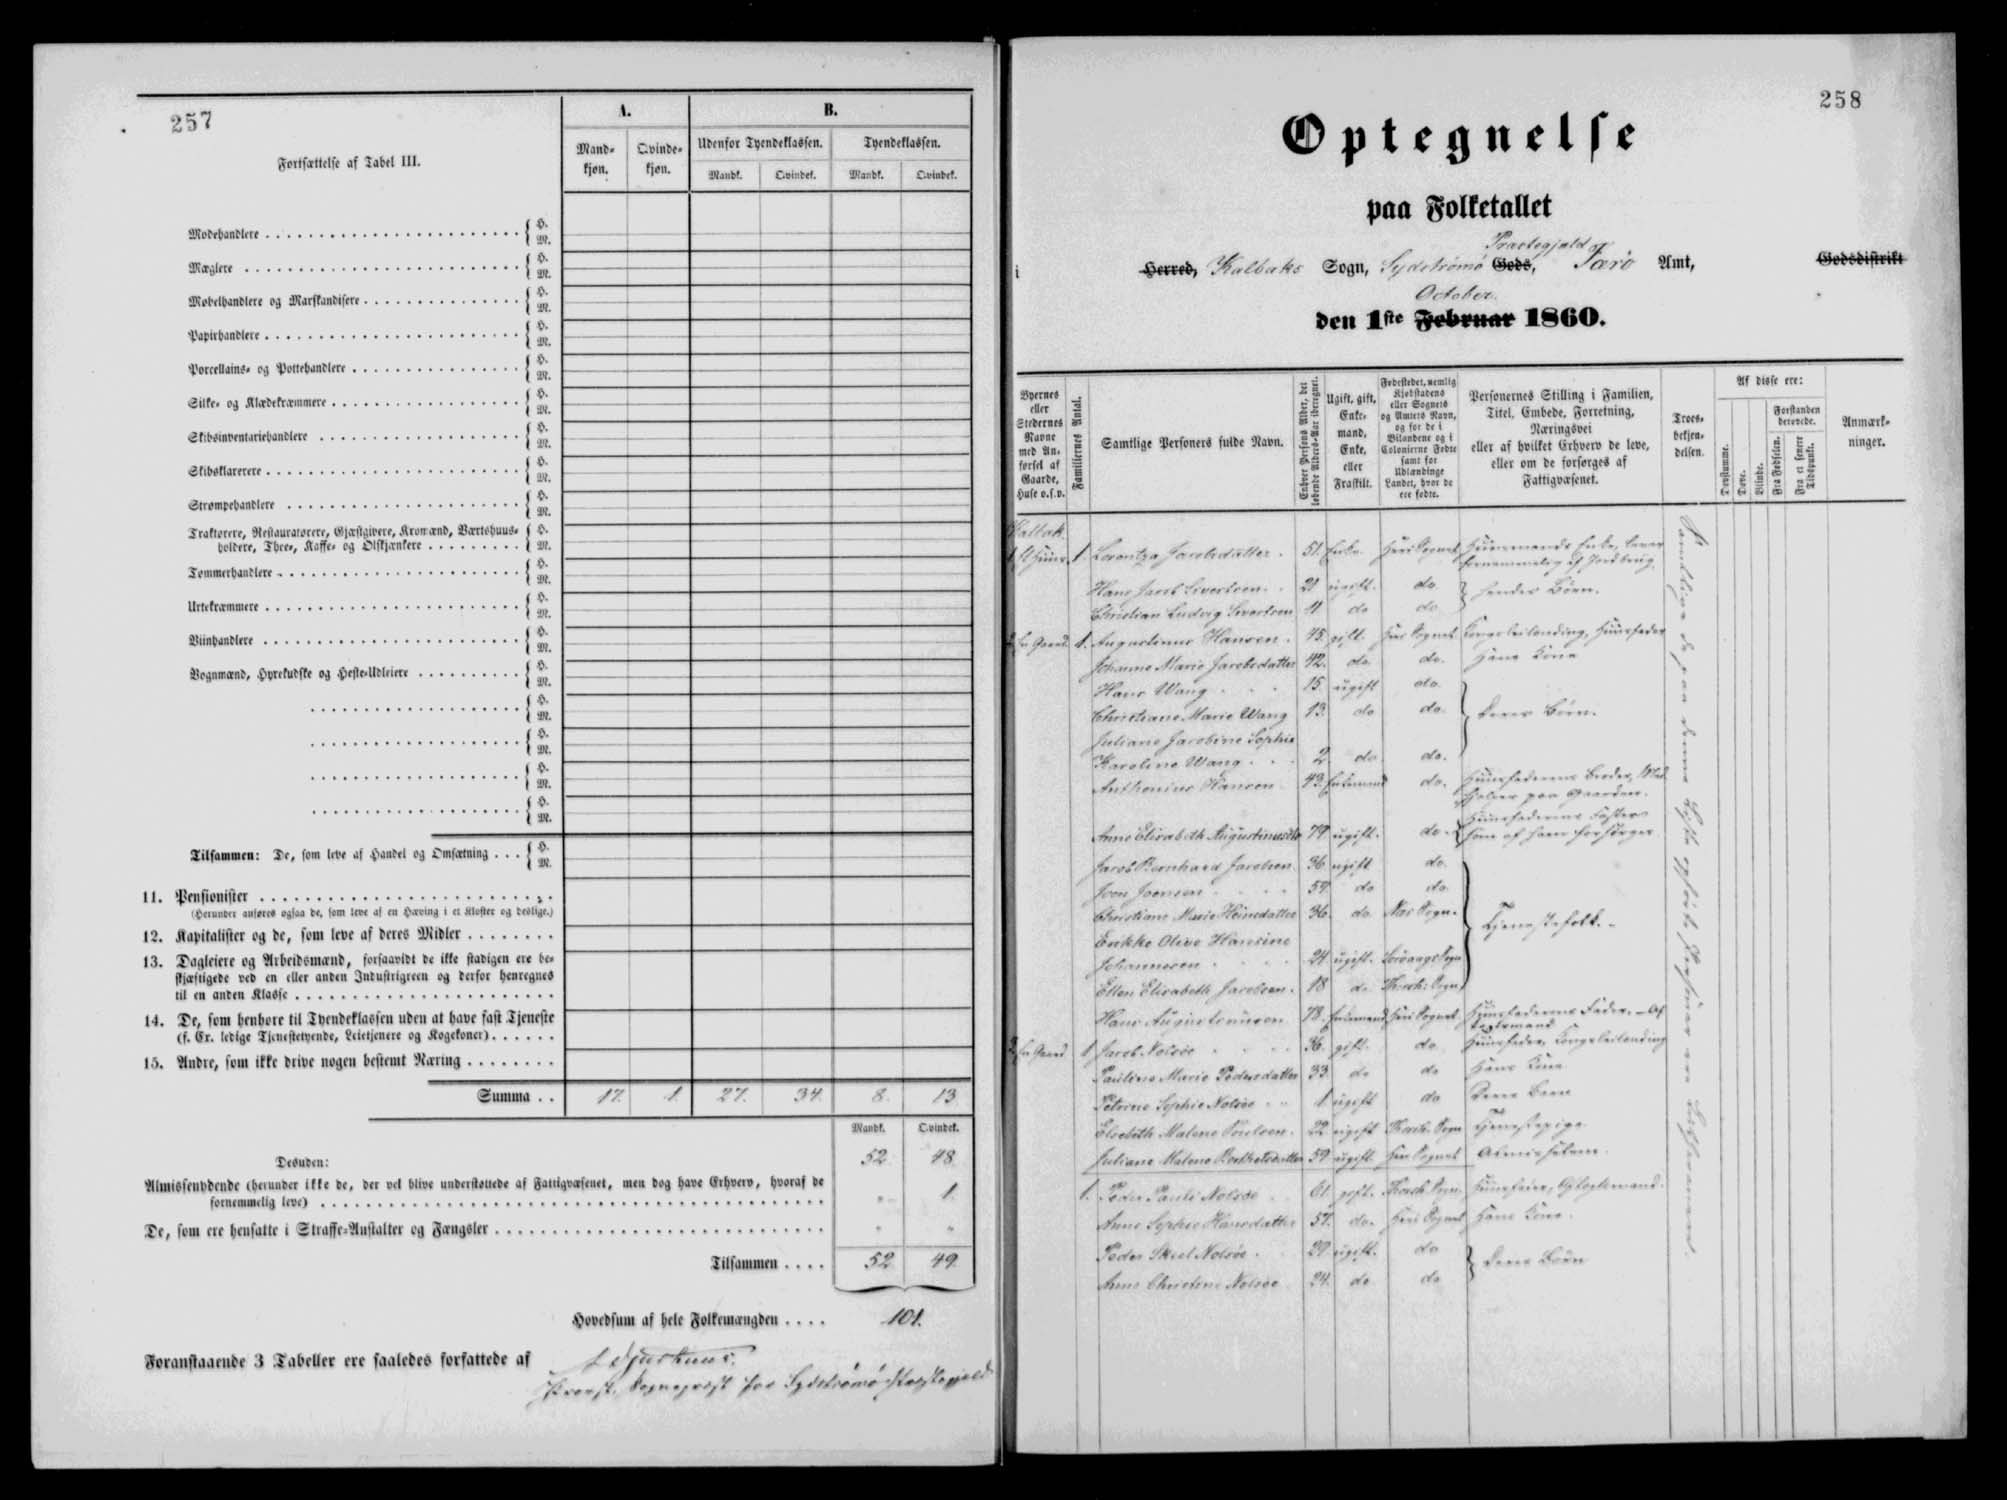 257
Fortsættelse af Tabel III.
A.
B.
Mand-
kjøn.
Qvinde-
kjøn.
Udenfor Tyendeklassen.
Tyendeklassen.
Mandk.
Qvindek.
Mandk.
Qvindek.
Modehandlere
H.
M.
Mæglere
H.
M.
Møbelhandlere og Marskandisere
H.
M.
Papirhandlere
H.
M.
Porcellains- og Pottehandlere
H.
M.
Silke- og Klædekræmmere
H.
M.
Skibsinventariehandlere
H.
M.
Skibsklarerere
H.
M.
Strømpehandlere
H.
M.
Traktører, Restauratører, Gjæstgivere, Kromænd, Værtshuus-
holdere, Thee-, Kaffe- og Ølskjænkere
H.
M.
Tømmerhandlere
H.
M.
Urtekræmmere
H.
M.
Viinhandlere
H.
M.
Vognmænd, Hyrekudske og Heste-Udleiere
H.
M.
H.
M.
H.
M.
H.
M.
H.
M.
Tilsammen: De, som leve af Handel og Omsætning
H.
M.
11. Pensionister
(Herunder anføres ogsaa de, som leve af en Hæving i et Kloster og deslige.)
12. Kapitalister og de, som leve af deres Midler
13. Dagleiere og Arbeidsmænd, forsaavidt de ikke stadigen ere be-
skjæftigede ved en eller anden Industrigreen og derfor henregnes
til en anden Klasse
14. De, som henhøre til Tyendeklassen uden at have fast Tjeneste
(f. Ex. ledige Tjenestetyende, Leietjenere og Kogekoner)
15. Andre, som ikke drive nogen bestemt Næring
Summa . . 17. 1. 27. 34. 8. 13.
Mandk. Qvindek.
Desuden: 52. 48.
Almissenydende (herunder ikke de, der vel blive understøttede af Fattigvæsenet, men dog have Erhverv, hvoraf de
fornemmelig leve) " 1.
De, som ere hensatte i Straffe-Anstalter og Fængsler " "
Tilsammen . . . . 52. 49.
Hovedsum af hele Folkemængden . . . . 101.
Foranstaaende 3 Tabeller ere saaledes forfattede af
Provst, Sognepræst for Sydstrømø Præstegjeld
258
Optegnelse
paa Folketallet
Præstegjeld
i Herred, Kalbaks Sogn, Sydströmö Gods, Færö Amt, Godsdistrikt
October.
den 1ste Februar 1860.
Byernes
eller
Stedernes
Navne
med An-
førsel af
Gaarde,
Huse o.s.v.
Familiernes Antal.
Samtlige Personers fulde Navn.
Enhver Persons Alder, det
løbende Alders-Aar iberegnet.
Ugift, gift,
Enke-
mand,
Enke,
eller
Fraskilt.
Fødestedet, nemlig
Kjøbstadens
eller Sognets
og Amtets Navn,
og for de i
Bilandene og i
Colonierne Fødte
samt for
Udlændinge
Landet, hvor de
ere fødte.
Personernes Stilling i Familien,
Titel, Embede, Forretning,
Næringsvei
eller af hvilket Erhverv de leve,
eller om de forsørges af
Fattigvæsenet.
Troes-
bekjen-
delsen.
Af disse ere:
Døvstumme.
Døve.
Blinde.
Forstanden
berøvede.
Fra Fødselen.
Fra et senere
Tidspunkt.
Anmærk-
ninger.
Kalbak.
1. Lorentza Jacobsdatter 51. Enke. Heri Sognet Huusmands Enke, lever
fornemmelig af Jordbrug
Hans Jacob Sivertsen 21 ugift. do. hendes Börn.
Christian Ludvig Sivertsen 11 do do
En Gaard 1. Augustinus Hansen 45. gift. Heri Sognet Kongsleilænding, Huusfader
Johanne Marie Jacobsdatter 42. do. do. Hans Kone
Hans Wang 15. ugift do.
Christiane Marie Wang 13. do do. deres Börn.
Juliane Jacobine Sophie
Karoline Wang 2 do. do.
Anthonius Hansen 43. Enkemand do. Huusfaderens Broder, Med-
hjelper paa Gaarden.
Huusfaderens Faster
Anne Elisabeth Augustinusdtr 79 ugift. do. som af ham forsörges
Jacob Bernhard Jacobsen 36. ugift do.
Joen Joensen 59. do do.
Christiane Marie Heinesdatter 36. do. Næs Sogn. Tjenestefolk.
Erikke Olive Hansine
Johannesen 24. ugift. Sörvaags Sogn
Ellen Elisabeth Jacobsen 18 do Thorsh. Sogn
Hans Augustinusen 78. Enkemand Heri Sognet Huusfaderens Fader, Af-
tægtsmand
En Gaard 1 Jacob Nolsöe 36. gift. do. Huusfader, Kongsleilænding
Pauline Marie Pedersdatter 33. do do Hans Kone
Petrine Sophie Nolsöe 1. ugift do Deres Barn
Elsebeth Malene Poulsen 22 ugift Thorsh. Sogn Tjenestepige
Juliane Malene 59 ugift Heri Sognet Almisselem.
1. Peder Pauli Nolsöe 61. gift. Thorsh Sogn. Huusfader, Aftægtsmand.
Anne Sophie Hansdatter 57. do. Heri Sognet Hans Kone.
Peder Skeel Nolsöe 29. ugift. do deres Börn
Anne Christine Nolsöe 24. do do
Samtlige de paa denne Liste opförte Personer ere Lutheranere.